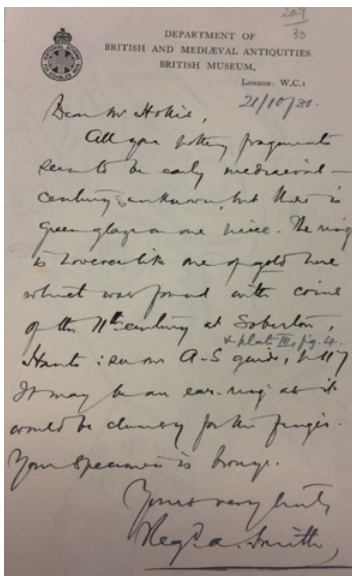 207
30
DEPARTMENT OF
BRITISH AND MEDIÆVAL ANTIQUITIES
BRITISH MUSEUM,
LONDON. W.C.1
21/10/30.
Dear Mr.
All your pottery fragments
seem to be early mediaeval –
century unknown, but there is
green glaze on one piece. The ring
is however like one of gold here
which was found with coins
of the 11th century at Soberton,
& plate III, fig. 4.
Hants: see our A-S guide, p. 117
It may be an ear-ring as it
would be clumsy for the finger.
Your specimen is bronze.
Yours very truly
Regd. A. Smith